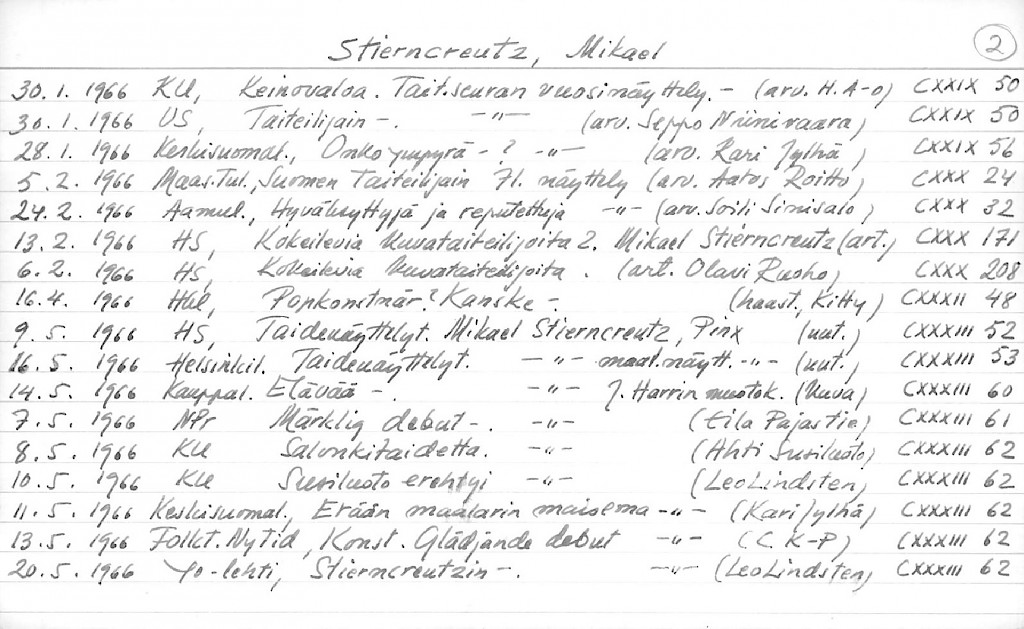 2
Stierncreutz, Mikael
30.1. 1966 KU, Keinovaloa. Tait.seuran vuosinäyttely. - (arv. H. A-o) CXXIX 50
30.1. 1966 US, Taiteilijain -. -"- (arv. Seppo Niinivaara) CXXIX 50
28.1. 1966 Keskisuomal., Onko -? -"- (arv. Kari Jylhä) CXXIX 56
5.2. 1966 Maas.Tul., Suomen Taiteilijain 71. näyttely (arv. Aatos Roitto) CXXX 24
24.2. 1966 Aamul., Hyväksyttyjä ja reputettuja -"- (arv. Soili Sinisalo) CXXX 32
13.2. 1966 HS, Kokeilevia kuvataiteilijoita 2. Mikael Stierncreutz (art.) CXXX 171
6.2. 1966 HS, Kokeilevia kuvataiteilijoita. (art. Olavi Ruoho) CXXX 208
16.4. 1966 Hbl, Popkonstnär? Kanske -. (haast. Kitty) CXXXII 48
9.5. 1966 HS, Taidenäyttelyt. Mikael Stierncreutz, Pinx (uut.) CXXXIII 52
16.5. 1966 Helsinkil. Taidenäyttelyt. -"- maal.näytt. -"- (uut.) CXXXIII 53
14.5. 1966 Kauppal. Elävää -. -"- J. Harrin muotok. (kuva) CXXXIII 60
7.5. 1966 NPr Märklig debut -. -"- (Eila Pajastie) CXXXIII 61
8.5. 1966 KU Salonkitaidetta. -"- (Ahti Susiluoto) CXXXIII 62
10.5. 1966 KU Susiluoto erehtyi -"- (Leo Lindsten) CXXXIII 62
11.5. 1966 Keskisuomal., Erään maalarin maisema -"- (Kari Jylhä) CXXXIII 62
13.5. 1966 Folkt. Ny tid, Konst. Glädjande debut -"- (C. K-P) CXXXIII 62
20.5. 1966 Yo-lehti, Stierncreutzin -. -"- (Leo Lindsten) CXXXIII 62